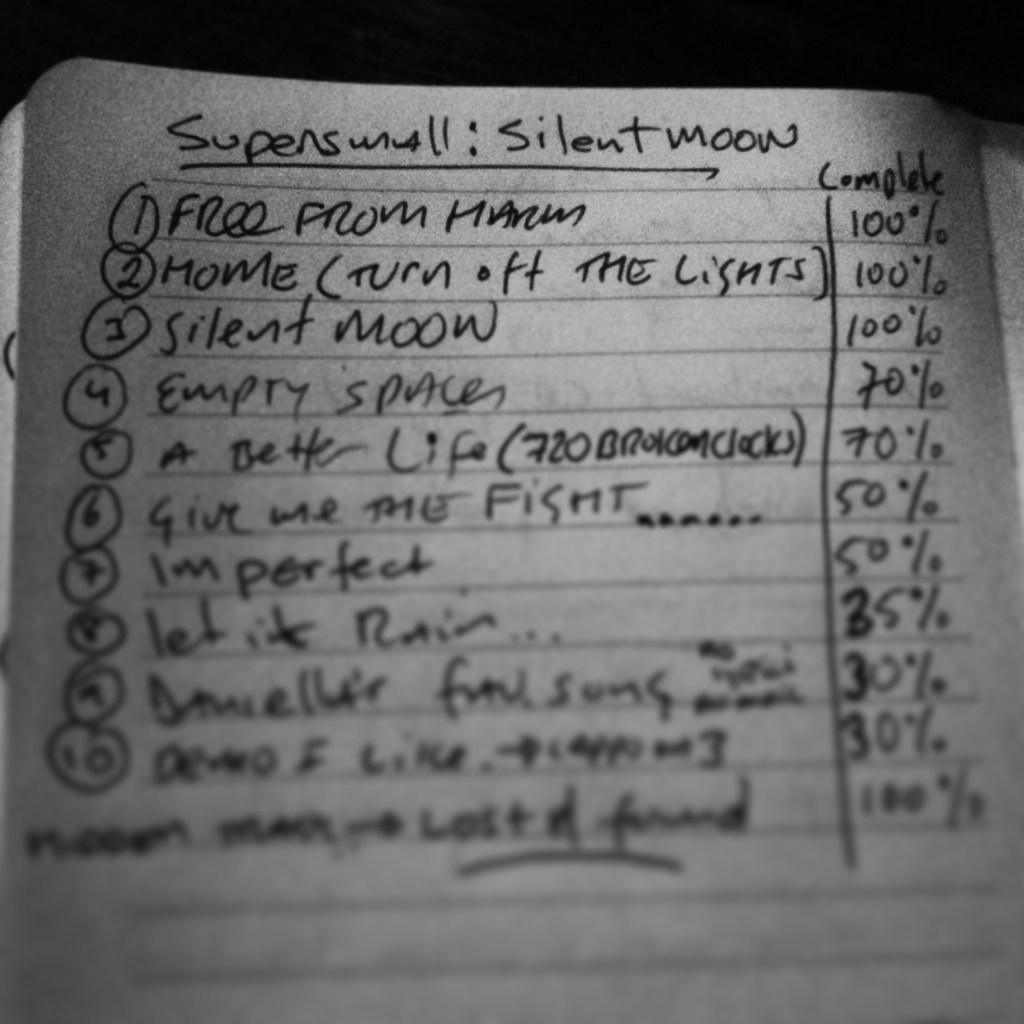 Supersmall: Silent moon
Complete
1 FREE FROM HARM 100%
2 HOME (TURN OFF THE LIGHTS) 100%
3 Silent MOON 100%
4 EMPTY SPACES 70%
5 A Better Life (720 BROKEN Clocks) 70%
6 Give me THE FIGHT....... 50%
7 Imperfect 50%
8 let it Rain... 35%
9 fav. song 30%
10 DEMO I Like. → 3 30%
→ Lost & found 100%